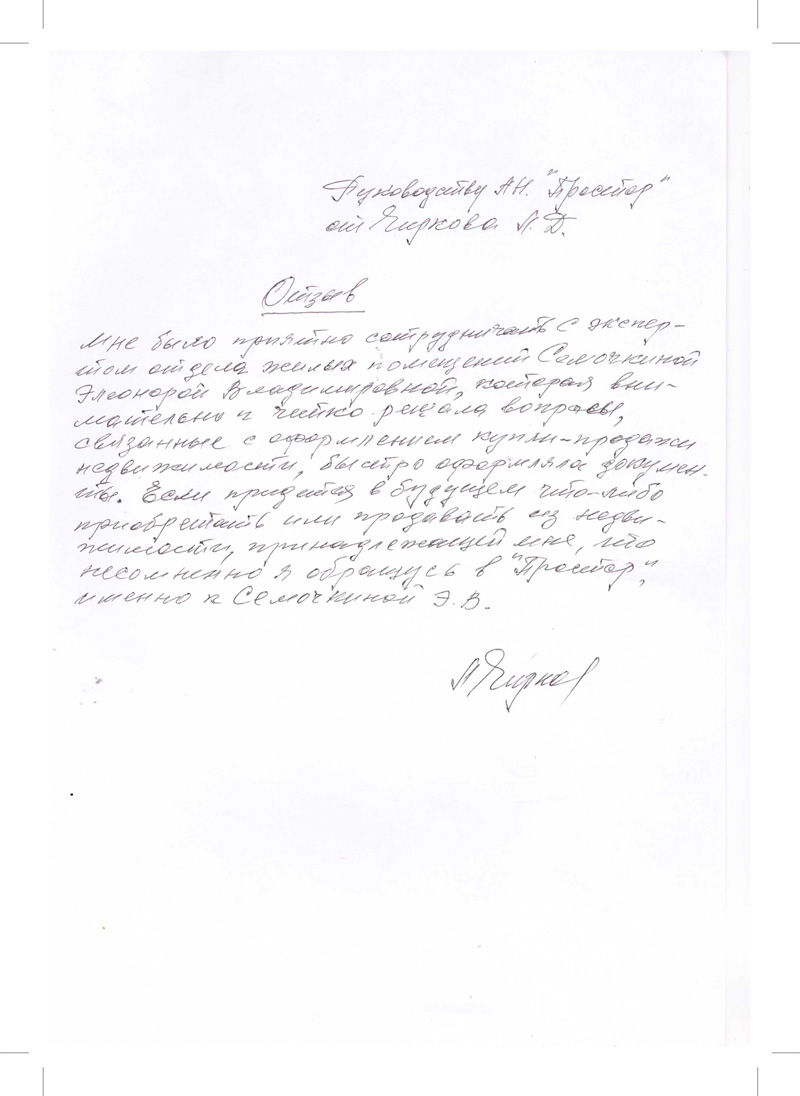 Руководству АН. "Простор"
от Чиркова А. Д.
Отзыв
Мне было приятно сотрудничать с экспер-
том отдела жилых помещений Семочкиной
Элеонорой Владимировной, которая вни-
мательно и чётко решала вопросы,
связанные с оформлением купли-продажи
недвижимости, быстро оформляла докумен-
ты. Если придется в будущем что-либо
приобретать или продавать из недви-
жимости, принадлежащей мне, то
несомненно я обращусь в "Простор",
именно к Семочкиной Э. В.
А Чирков